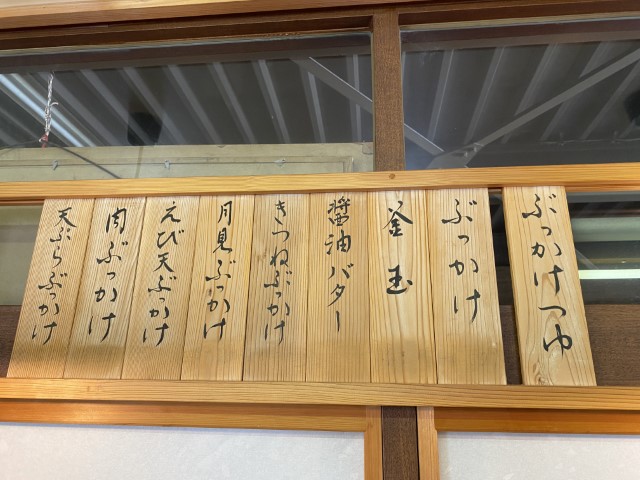 ぶっかけつゆ
ぶっかけ
釜玉
醤油バター
きつねぶっかけ
月見ぶっかけ
えび天ぶっかけ
肉ぶっかけ
天ぷらぶっかけ